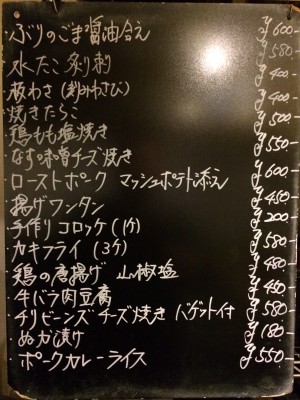 ・ぶりのごま醤油合え ¥600-
・水たこ炙り刺 ¥580-
・板わさ(刻みわさび) ¥400-
・焼きたらこ ¥400-
・鶏もも塩焼き ¥500-
・なす味噌チーズ焼き ¥550-
・ローストポーク マッシュポテト添え ¥600-
・揚げワンタン ¥450-
・手作りコロッケ(1ケ) ¥200-
・カキフライ(3ケ) ¥580-
・鶏の唐揚げ 山椒塩 ¥480-
・牛バラ肉豆腐 ¥450-
・チリビーンズチーズ焼き バゲット付 ¥580-
・ぬか漬け ¥180-
・ポークカレーライス ¥550-